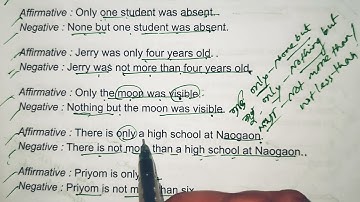 Affirmative : Only one student was absent.
Negative : None but one student was absent.
Affirmative : Jerry was only four years old.
Negative : Jerry was not more than four years old.
Affirmative : Only the moon was visible.
Negative : Nothing but the moon was visible.
Affirmative : There is only a high school at Naogaon.
Negative : There is not more than a high school at Naogaon..
Affirmative : Priyom is only
Negative : Priyom is not more than six
only - none but
only - nothing but
not more than/
not less than